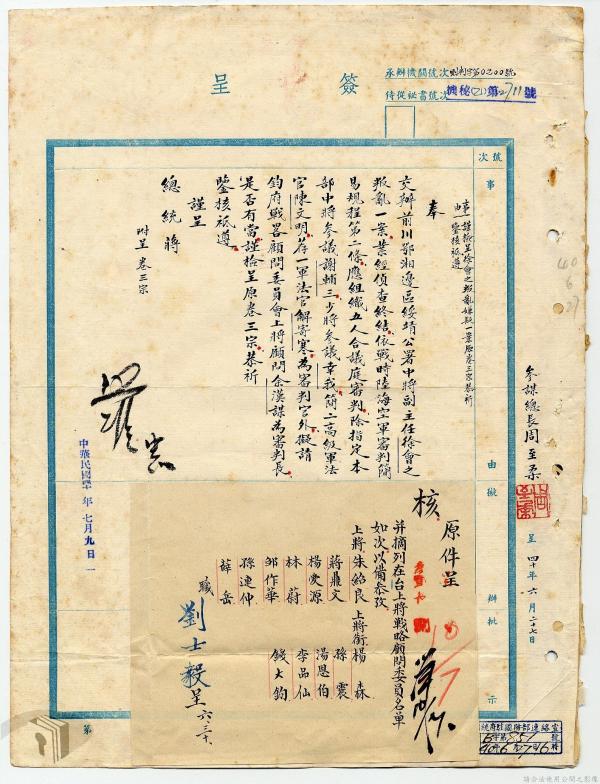 簽呈
承辦機關號次
侍從祕書號次機秘(乙)第2711號
號次
事由
擬辦
批示
事由：謹檢呈徐會之叛亂嫌疑一案原卷三宗恭祈
鑒核祗遵
奉
交辦前川鄂湘邊區綏靖公署中將副主任徐會之
叛亂一案業經偵查終結依戰時陸海空軍審判簡
易規程第二條應組織五人合議庭審判除指定本
部中將參議謝輔三少將參議幸我簡二高級軍法
官陳文明荐一軍法官解寄寒為審判官外擬請
鈞府戰畧顧問委員會上將顧問余漢謀為審判長
是否有當謹檢呈原卷三宗恭祈
鑒核祗遵
謹呈
總統蔣
附呈卷三宗
參謀總長周至柔
呈四十年六月二十七日
40
6
27
中華民國四十年七月九日
原件呈
核
并摘列在台上將戰略顧問委員名單
如次以備參攷
上將朱紹良
蔣鼎文
楊愛源
林蔚
鄒作華
孫連仲
薛岳
上將銜楊森
孫震
湯恩伯
李品仙
錢大鈞
職劉士毅呈六.三十
第